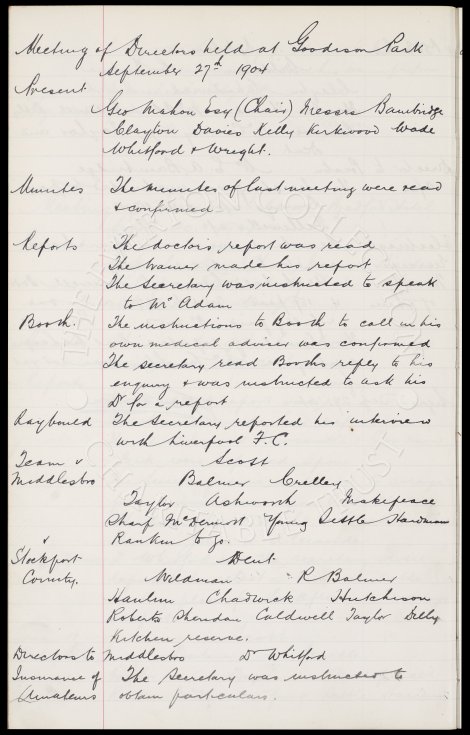 Meeting of Directors held at Goodison Park
September 27th 1904
Present
Geo Mahon Esq (Chair) Messrs Bainbridge
Clayton Davies Kelly Kirkwood Wade
Whitford & Wright.
Minutes The minutes of last meeting were read
& confirmed
Reports The doctors report was read
The trainer made his report
The Secretary was instructed to speak
to Mr Adam
Booth. The instructions to Booth to call in his
own medical adviser was confirmed
The secretary read Booths reply to his
enquiry & was instructed to ask his
Dr for a report
Raybould The Secretary reported his interview
with Liverpool F.C.
Team v Scott
Middlesbro Balmer Crelley
Taylor Ashworth Makepeace
Sharp McDermott Young Settle Hardman
Rankin to go.
v
Stockport Dent
County. Wildman R Balmer
Hanlin Chadwick Hutchison
Roberts Sheridan Caldwell Taylor Dilly
Kitchen reserve.
Directors to Middlesbro Dr Whitford
Insurance of The Secretary was instructed to
Amateurs obtain particulars.